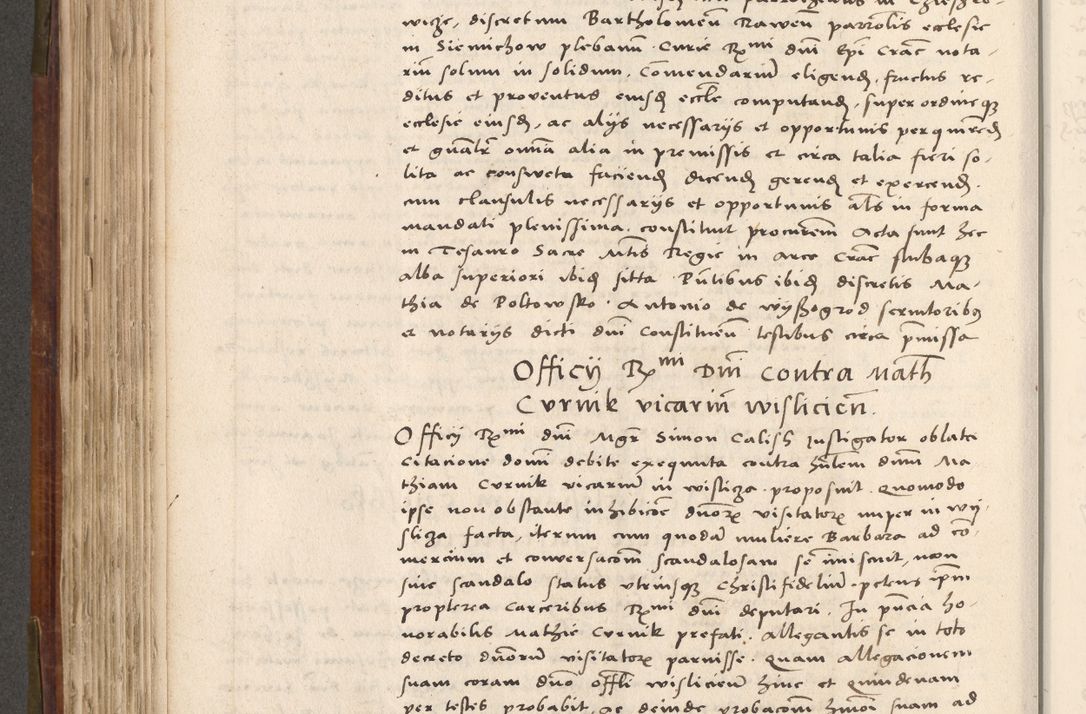 wicze, discretum Bartholomeū Nawen parrolis ecclesie
in Siemichow plebanū Curie Rmi dni Epi Crac nota-
riū solum in solidum. Comendariū eligend, fructus re-
ditus et proventus eiusd eccle computand, super ordine qz
ecclesie eiusd, ac alijs necessarijs et opportunis perquirend
et gnalr omīa alia in premissis et circa talia fieri so-
lita ac consweta faciend dicend gerend et exercend.
cum clausulis necessarijs et opportunis als in forma
mandati plenissima. constituit procurem Acta sunt hec
in Tesauro Sacre Mtis Regie in Arce Crac stubaqz
alba superiori ibid sitta Pntibus ibid discretis Ma-
thia de Poltowsko. Antonio de wyssogrod servitoribz
et notarijs dicti dni Constituen testibus circa pmissa
Officij Rmi Dni contra Math
Curnik vicariū wislicien.
Officij Rmi dni Mgr Simon Calish Instigator oblata
citacione domi debite exequuta contra hnlem dnm Ma-
thiam Curnik vicariū in wislicza. proposuit. Quomodo
ipse non obstante inhibicōe dnorz visitatorz nuper in wy-
slicza facta, iterum cum quadā muliere Barbara ad co-
mercium et conversacōm scandalosam se īmiscuit, non
sine scandalo status utriusqz Christifideliū. petens ipm
propterea Carceribus Rmi dni deputari. In pncia ho-
norabilis Mathie Curnik prefati. Allegantis se in toto
decreto dnorū visitatorz paruisse. Quam allegacionem
suam coram dno offli wislicien hinc et quindenam
per testes probabit, ac deinde probacōm hmōi suam ad